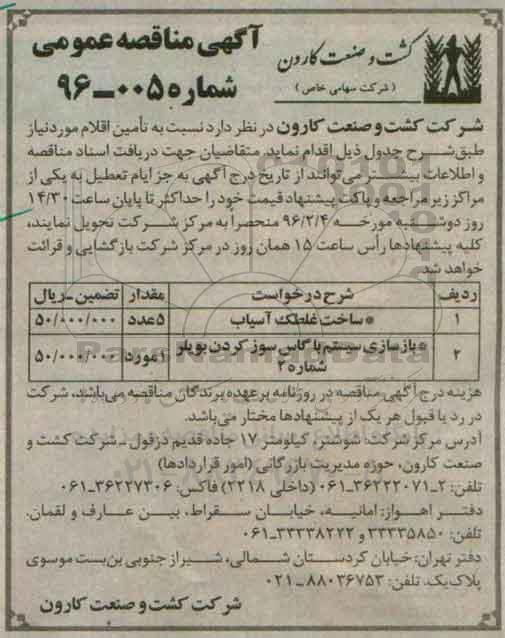 کشت و صنعت کارون
( شرکت سهامی خاص )
آگهی مناقصه عمومی
شماره ۰۰۵-۹۶
شرکت کشت و صنعت کارون در نظر دارد نسبت به تأمین اقلام موردنیاز
طبق شرح جدول ذیل اقدام نماید. متقاضیان جهت دریافت اسناد مناقصه
و اطلاعات بیشتر می‌توانند از تاریخ درج آگهی به جز ایام تعطیل به یکی از
مراکز زیر مراجعه و پاکت پیشنهاد قیمت خود را حداکثر تا پایان ساعت ۱۴/۳۰
روز دوشنبه مورخه ۹۶/۲/۴ منحصراً به مرکز شرکت تحویل نمایند،
کلیه پیشنهادها رأس ساعت ۱۵ همان روز در مرکز شرکت بازگشایی و قرائت
خواهد شد.
ردیف شرح درخواست مقدار تضمین-ریال
۱ *ساخت غلطک آسیاب ۵عدد ۵۰/۰۰۰/۰۰۰
۲ *بازسازی سیستم با گاس سوز کردن بویلر شماره ۲ ۱مورد ۵۰/۰۰۰/۰۰۰
هزینه درج آگهی مناقصه در روزنامه بر عهده برندگان مناقصه می‌باشد، شرکت
در رد یا قبول هر یک از پیشنهادها مختار می‌باشد.
آدرس مرکز شرکت: شوشتر، کیلومتر ۱۷ جاده قدیم دزفول - شرکت کشت و
صنعت کارون، حوزه مدیریت بازرگانی (امور قراردادها)
تلفن: ۲-۳۶۲۲۲۰۷۱-۰۶۱ (داخلی ۲۲۱۸) فاکس: ۳۶۲۲۷۳۰۶-۰۶۱
دفتر اهواز: امانیه، خیابان سقراط، بین عارف و لقمان.
تلفن: ۳۳۳۳۵۸۵۰ و ۳۳۳۳۸۲۴۲-۰۶۱
دفتر تهران: خیابان کردستان شمالی، شیراز جنوبی بن‌بست موسوی
پلاک یک. تلفن: ۸۸۰۳۶۷۵۳-۰۲۱
شرکت کشت و صنعت کارون